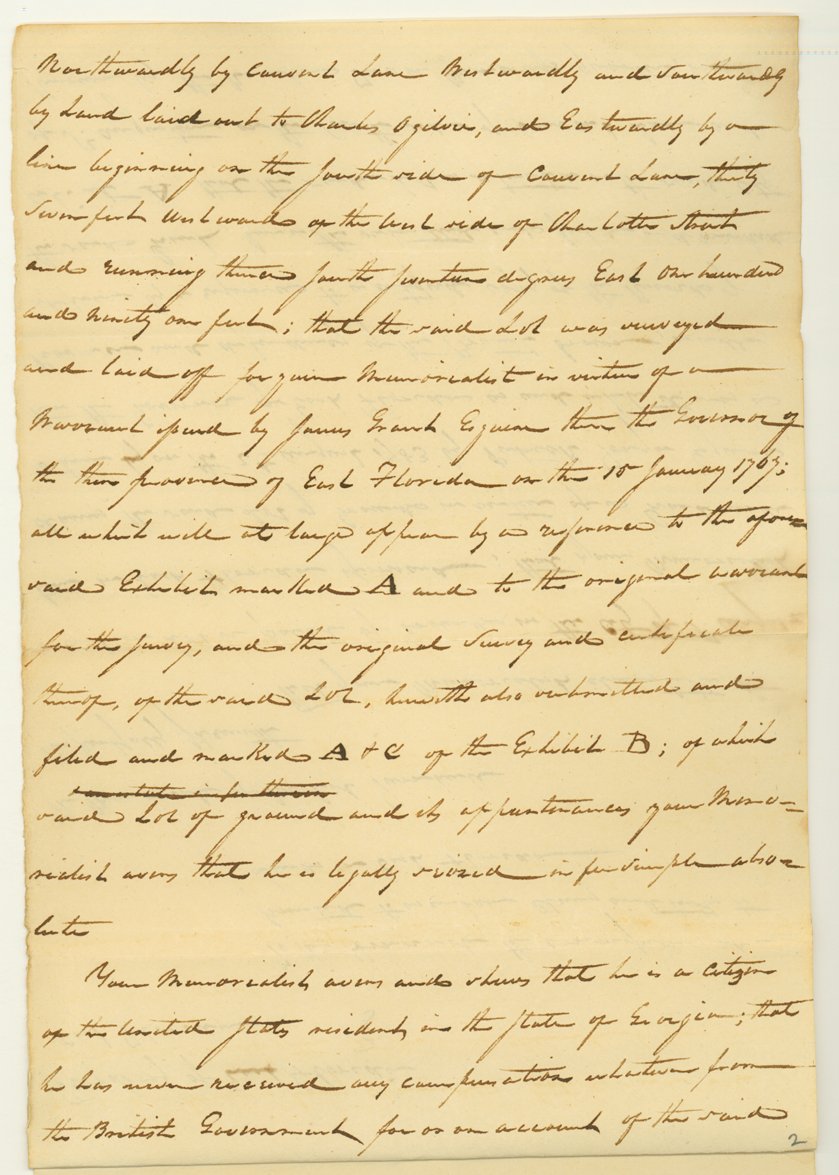 Northwardly by Convent Lane Westwardly and Southwardly
by Land laid out to Charles Ogilvie, and Eastwardly by a
line beginning on the South side of Convent Lane, thirty
Seven feet Westward of the West side of Charlotte Street
and running thence South Seventeen degrees East One hundred
and ninety one feet; that the said Lot was surveyed
and laid off for your Memorialist in virtue of a
Warrant issued by James Grant Esquire then the Governor of
the then province of East Florida on the 15 January 1767;
all which will at large appear by a reference to the afore=
said Exhibit marked A and to the original warrant
for the Survey, and the original Survey and certificate
thereof, of the said Lot, herewith also submitted and
filed and marked A & C of the Exhibit B; of which
said Lot of ground and its appurtenances your Memo=
rialist avers that he is legally seized in fee simple abso=
lute
Your Memorialist avers and shews that he is a citizen
of the United States resident in the State of Georgia; that
he has never received any compensation whatever from
the British Government for or on account of the said
2